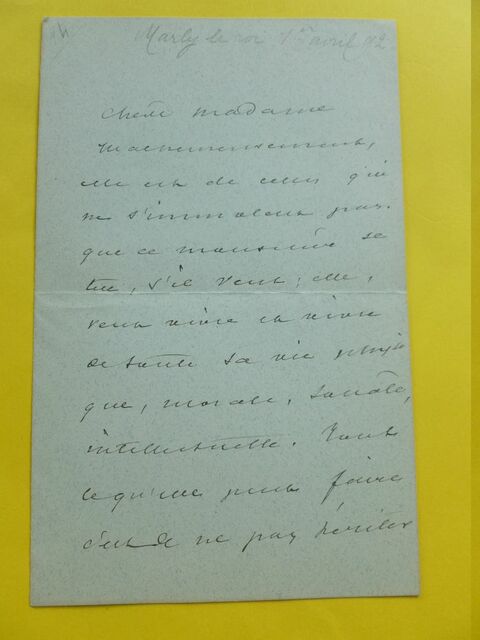 Marly le roi 1er avril 92
chère madame
malheureusement,
elle est de celles qui
ne s'immolent pas.
que ce monsieur se
tue, s'il veut ; elle,
veut vivre et vivre
de toute sa vie physi
que, morale, sociale,
intellectuelle. Tout
ce qu'elle peut faire
c'est de ne pas hériter